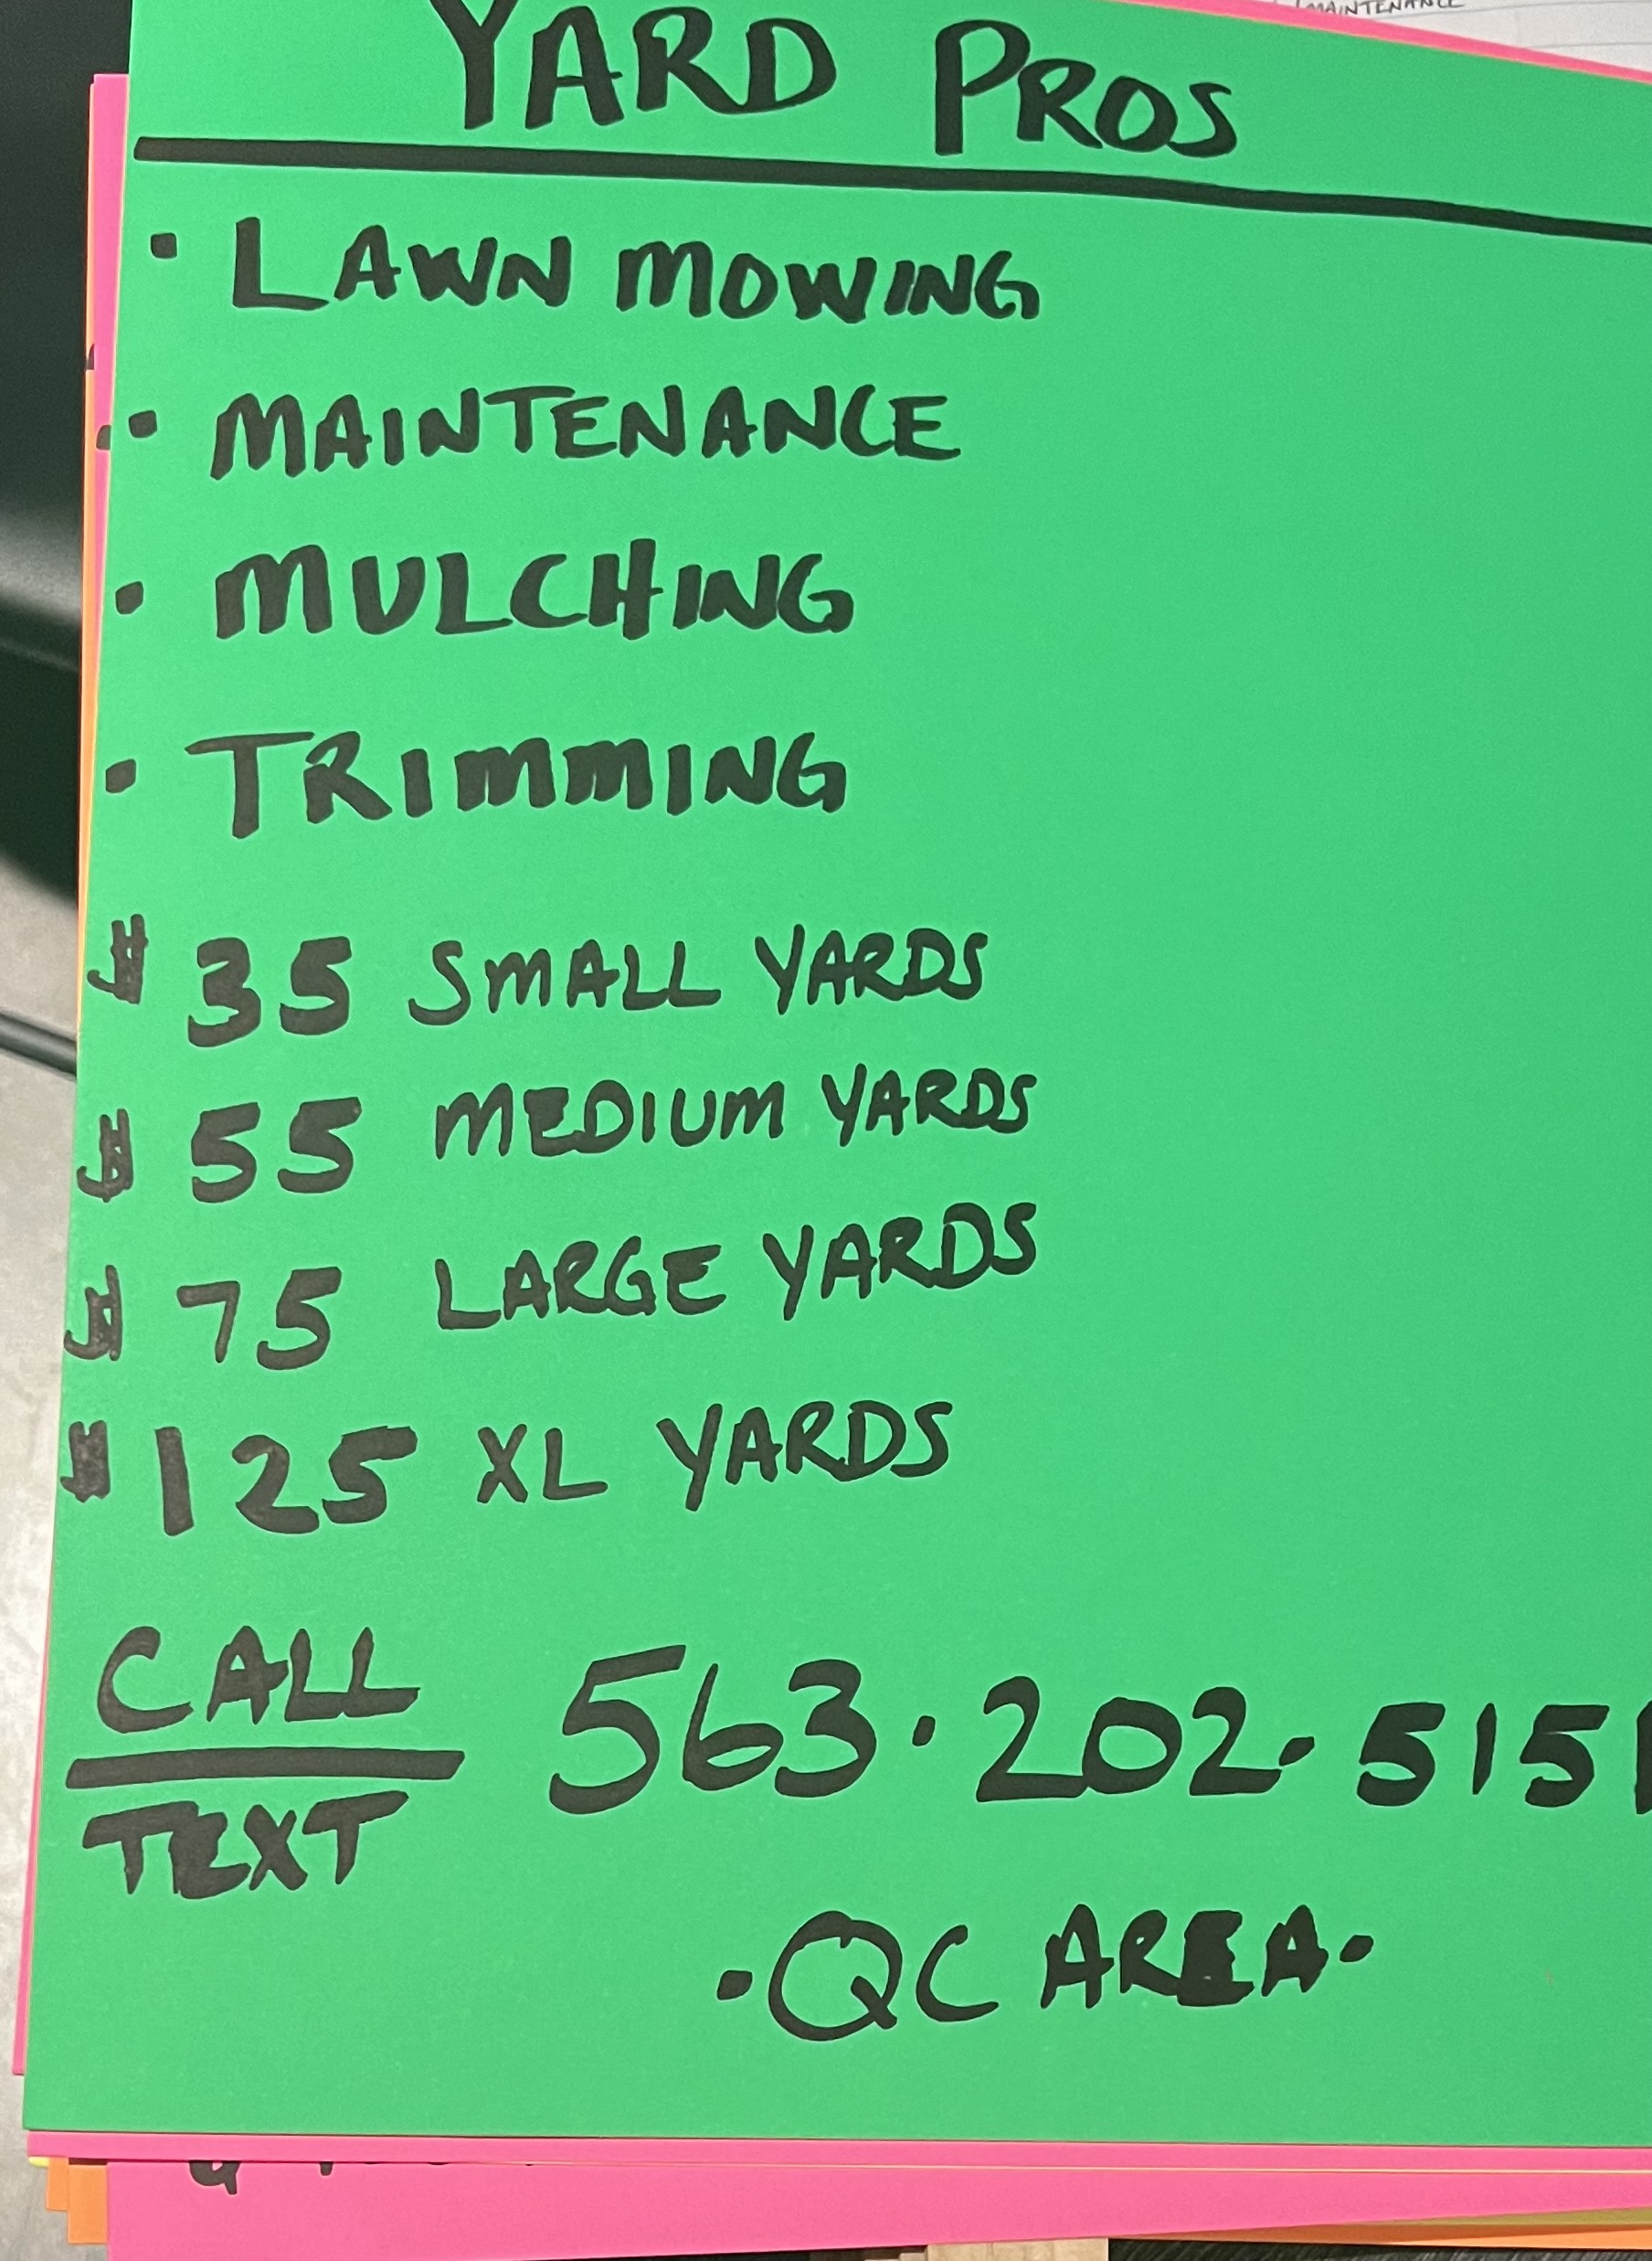 MAINTENANCE
YARD PROS
• LAWN MOWING
• MAINTENANCE
• MULCHING
• TRIMMING
$35 SMALL YARDS
$55 MEDIUM YARDS
$75 LARGE YARDS
$125 XL YARDS
CALL
TEXT
563·202·5151
·QC AREA·